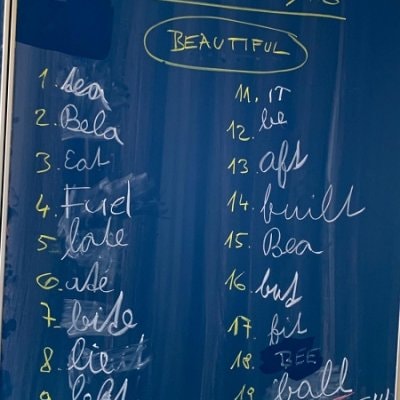 BEAUTIFUL
1. sea
2. Bela
3. Eat
4. Fuel
5. late
6. ate
7. bite
8. lie
9. left
11. IT
12. be
13. aft
14. built
15. Bea
16. but
17. fit
18. BEE
19. ball